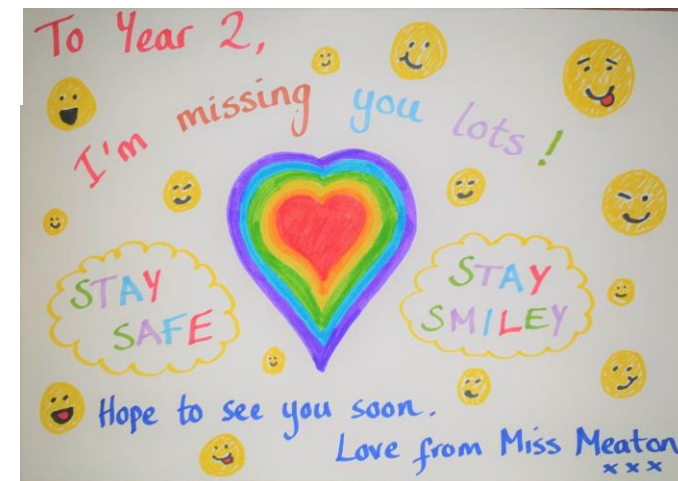 To Year 2,
I'm missing you lots!
STAY
SAFE
STAY
SMILEY
Hope to see you soon.
Love from Miss Meaton
x x x